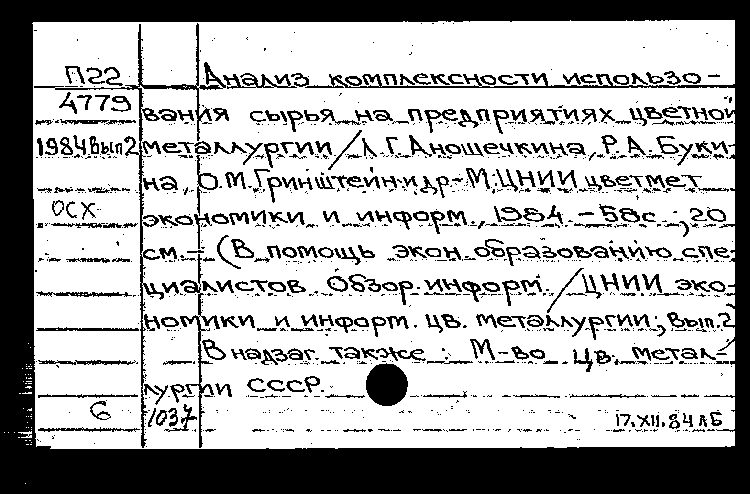 П22 Анализ комплексности использо-
4779 вания сырья на предприятиях цветной
1984 вып2 металлургии / Л.Г.Аношечкина, Р.А.Буки-
на, О.М.Гринштейн и др.-М: ЦНИИ цветмет
ОСХ экономики и информ., 1984. - 58с.; 20
см. - (В помощь экон. образованию спе-
циалистов. Обзор. информ. / ЦНИИ эко-
номики и информ. цв. металлургии; Вып.2
В надзаг. также: М-во цв. метал-
лургии СССР
6 1037 17.XII.84 лБ